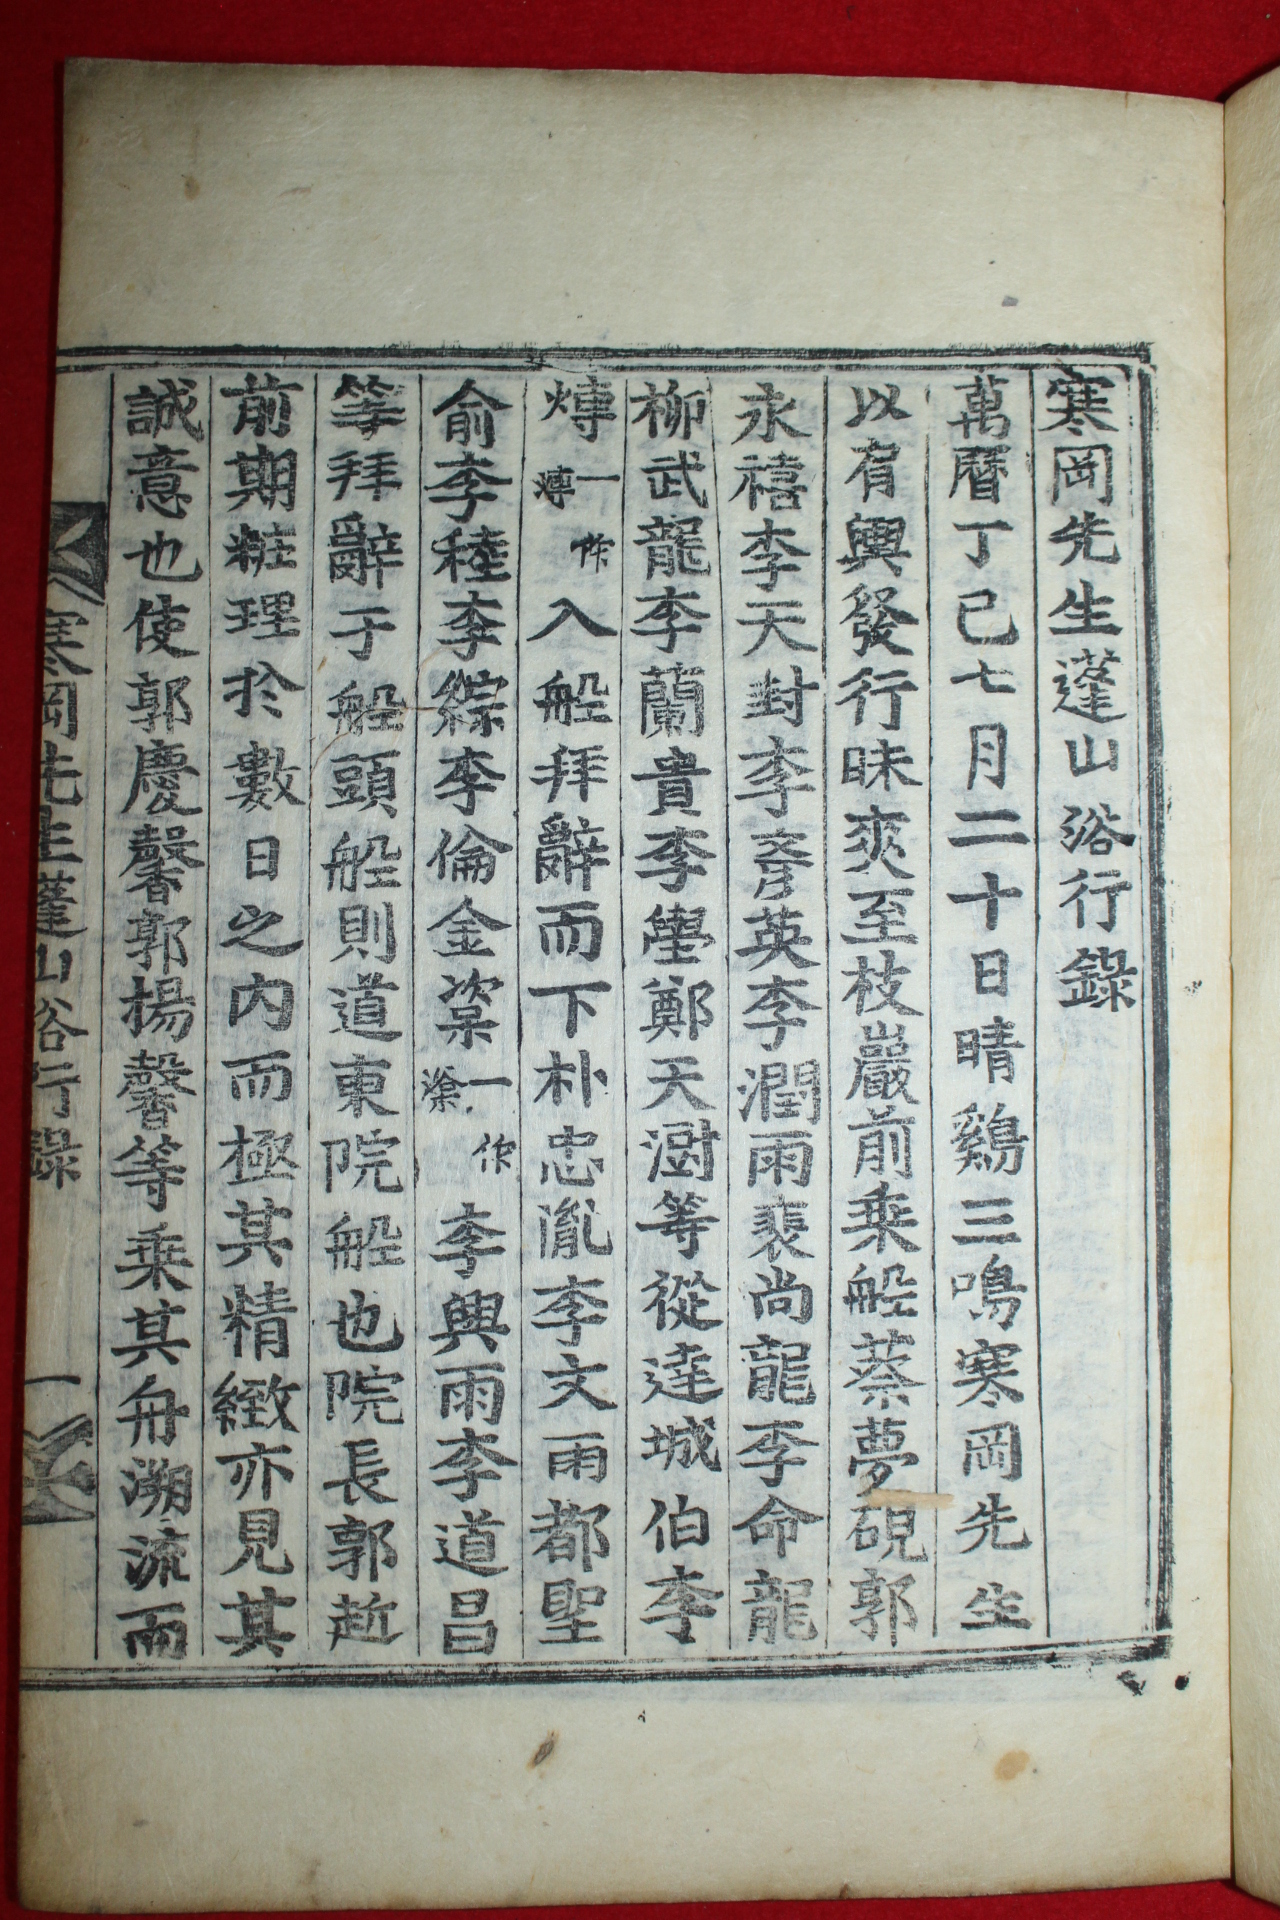 寒岡先生蓬山浴行錄
萬曆丁巳七月二十日晴鷄三鳴寒岡先生
以有輿發行昧爽至枝巖前乘船蔡夢硯郭
永禧李天封李彥英李潤雨裵尚龍李命龍
柳武龍李蘭貴李學鄭天澍等從達城伯李
㷟一作𤹠入船拜辭而下朴忠胤李文雨都聖
俞李𥠇李綜李倫金㓒一作滐李興雨李道昌
等拜辭于船頭船則道東院船也院長郭赾
前期粧理於數日之內而極其精緻亦見其
誠意也使郭慶馨郭揚馨等乘其舟溯流而
寒岡先生蓬山浴行錄 一